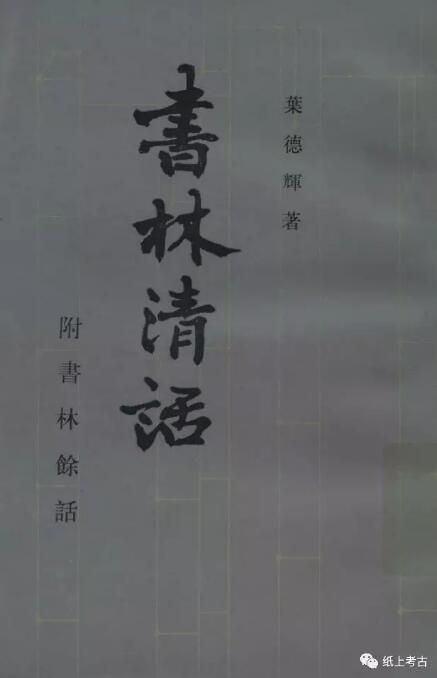 葉德輝著
書林清話
附書林餘話
纸上考古